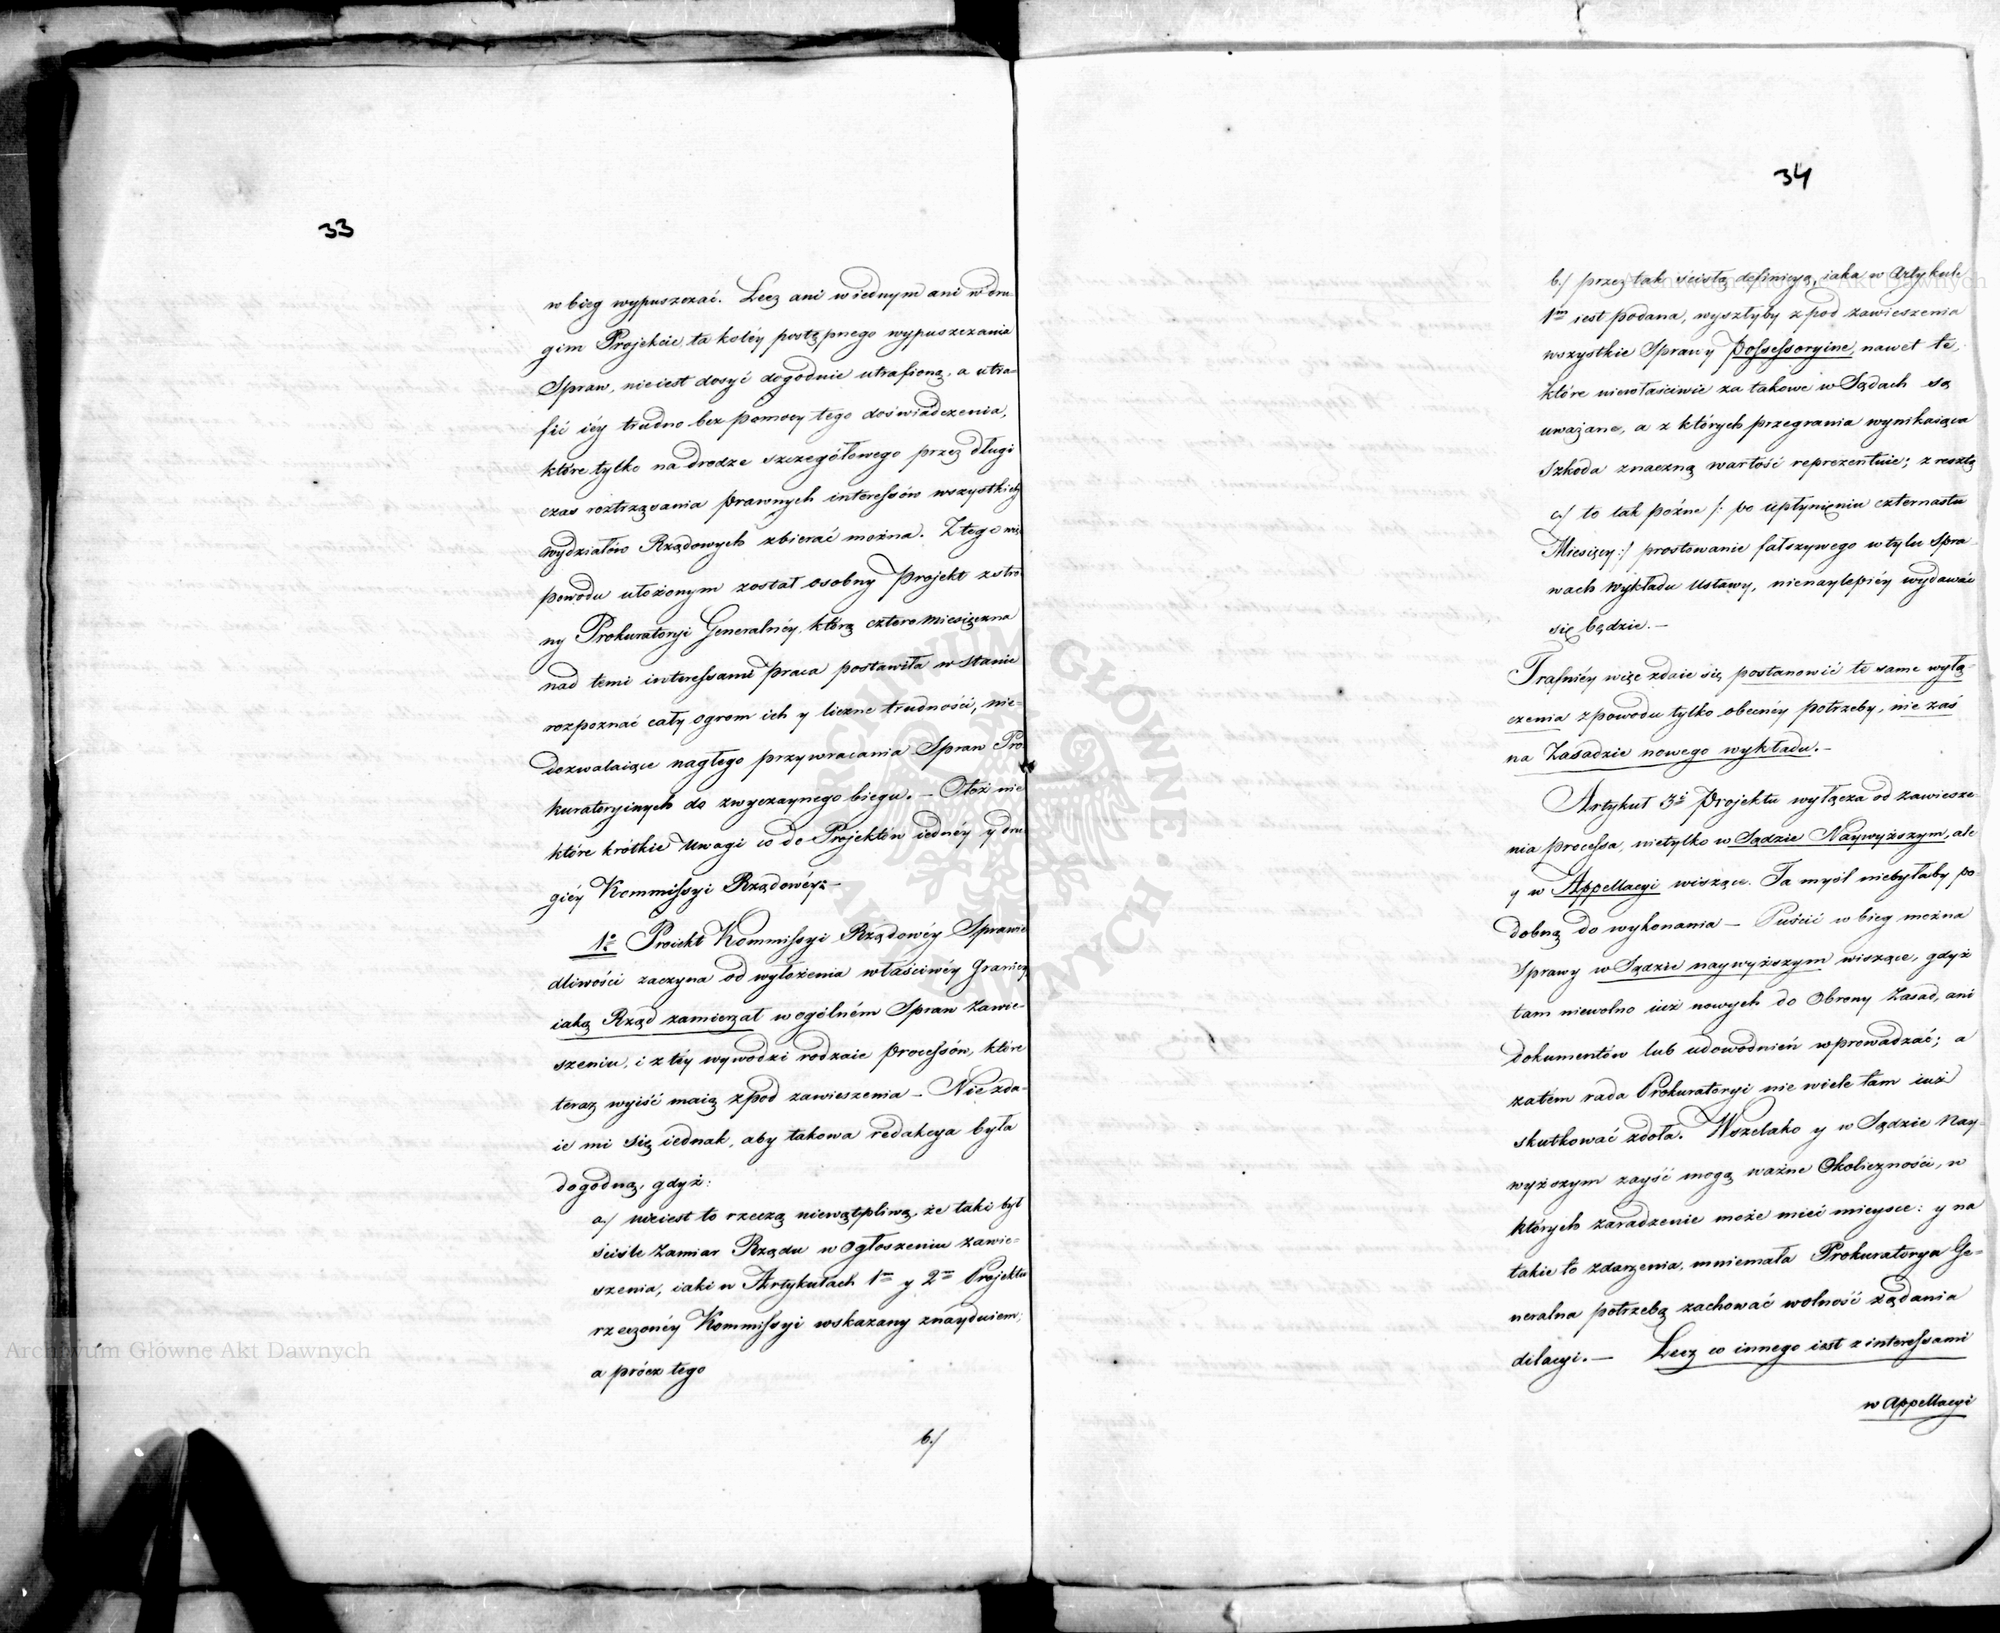 33
w bieg wypuszczać. Lecz ani w iednym ani w dru-
gim Projekcie, ta koléy postępnego wypuszczania
Spraw, nieiest dosyć dogodnie utrafioną, a utra-
fić iéy trudno bez pomocy tego doświadczenia,
które tylko na drodze szczegółowego przez długi
czas roztrząsania prawnych interessów wszystkich
Wydziałów Rządowych zbierać można. Z tego więc
powodu ułożonym został osobny Projekt ze stro-
ny Prokuratoryi Generalnéy, którą cztero miesięczna
nad temi interessami praca postawiła w stanie
rozpoznać cały ogrom ich y liczne trudności, nie-
dozwalaiące nagłego przywracania Spraw Pro-
kuratoryinych do zwyczaynego biegu. — Otóż nie-
które krótkie Uwagi co do Projektów iednéy y dru-
giéy Kommissyi Rządowéy: —
1º Proiekt Kommissyi Rządowéy Sprawie-
dliwości zaczyna od wyłożenia właściwéy granicy
iaką Rząd zamierzał w ogólném Spraw Zawie-
szeniu, i z téy wywodzi rodzaie processów, które
teraz wyiść maią z pod zawieszenia — Nie zda-
ie mi się iednak, aby takowa redakcya była
dogodną, gdyż:
a/ nieiest to rzeczą niewątpliwą, że taki był
ściśle Zamiar Rządu w Ogłoszeniu zawie-
szenia, iaki w Artykułach 1m y 2m Projektu
rzeczonéy Kommissyi wskazany znayduiem,
a prócz tego
b/
34
b/ przez tak ścisłą definicyą, iaka w Artykule
1m iest podana, wyszłyby z pod zawieszenia
wszystkie Sprawy Possessoryine, nawet te,
które niewłaściwie za takowe w Sądach są
uważane, a z których przegrania wynikaiąca
Szkoda znaczną wartość reprezentuie; z resztą
c/ to tak późne /: po upłynieniu czternastu
Miesięcy :/ prostowanie fałszywego w tylu Spra-
wach wykładu Ustawy, nienaylepiéy wydawać
się będzie. —
Trafniéy więc zdaie się postanowić te same wyłą-
czenia z powodu tylko obecnéy potrzeby, nie zaś
na Zasadzie nowego wykładu. —
Artykuł 3i Projektu wyłącza od zawiesze-
nia processa, nietylko w Sądzie Naywyższym, ale
y w Appellacyi wiszące. Ta myśl niebyłaby po-
dobną do wykonania — Puścić w bieg można
Sprawy w Sądzie naywyższym wiszące, gdyż
tam niewolno iuż nowych do Obrony Zasad, ani
dokumentów lub udowodnień wprowadzać; a
zatém rada Prokuratoryi nie wiele tam iuż
skutkować zdoła. Wszelako y w Sądzie Nay-
wyższym zayść mogą ważne Okoliczności, w
których zaradzenie może mieć mieysce: y na
takie to zdarzenia, mniemała Prokuratorya Ge-
neralna potrzebą zachować wolność żądania
dilacyi. — Lecz co innego iest z interessami
w Appellacyi
Archiwum Główne Akt Dawnych
Archiwum Główne Akt Dawnych
ARCHIWUM GŁÓWNE AKT DAWNYCH